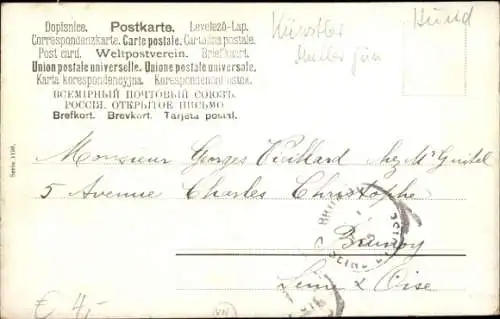 Dopisnice. Postkarte. Levelező-Lap.
Correspondenzkarte. Carte postale. Cartolina postale.
Post card. Weltpostverein. Briefkort.
Union postale universelle. Unione postale universale.
Karta korespondencyjna. Korespondenční lístek.
ВСЕМІРНЫЙ ПОЧТОВЫЙ СОЮЗЪ.
РОССІЯ. ОТКРЫТОЕ ПИСЬМО
Brefkort. Brevkort. Tarjeta postal.
Künstler
Müller jün
Hund
Monsieur Georges Vuillard chez Mr
5 Avenue Charles Christophe
Brunoy
Seine & Oise
BRUNOY
SEINE ET OISE
€ 4,-
Serie